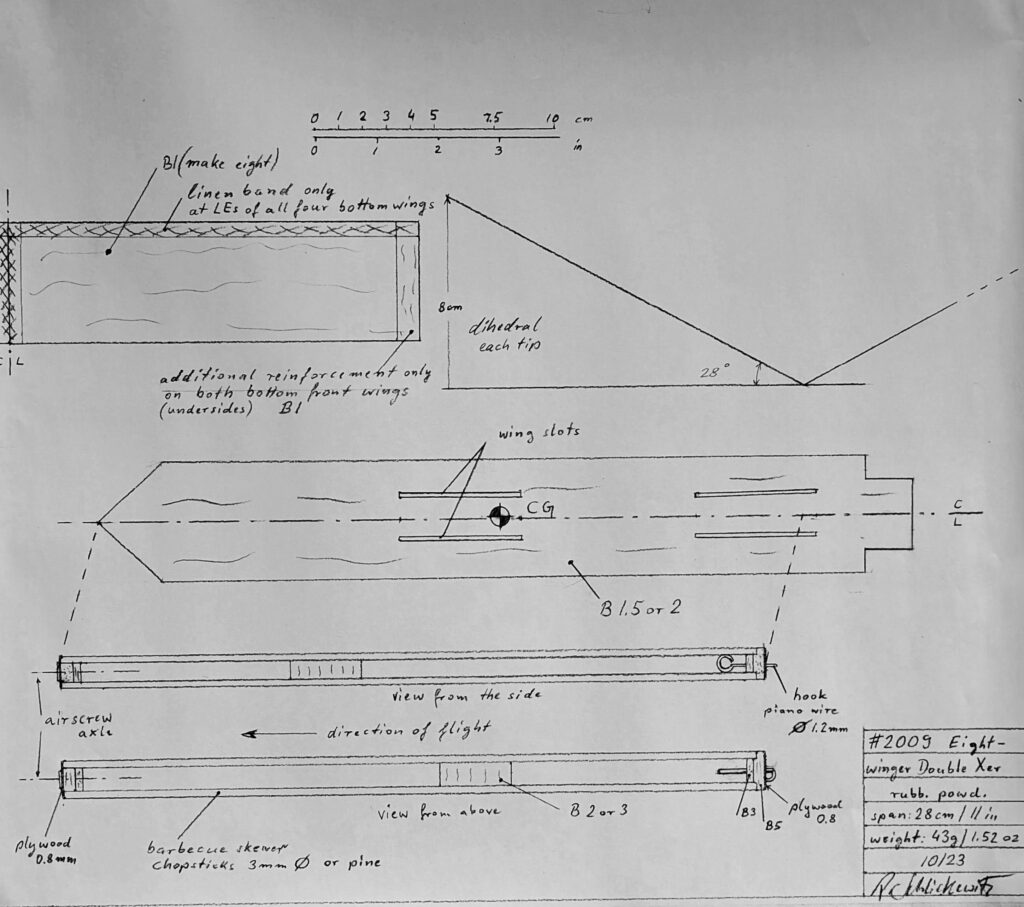 0 1 2 3 4 5 7.5 10 cm
0 1 2 3 in
B1 (make eight)
linen band only
at LEs of all four bottom wings
C L
8cm
dihedral
each tip
28°
additional reinforcement only
on both bottom front wings
(undersides) B1
wing slots
CG
C
L
B 1.5 or 2
view from the side
hook
piano wire
Ø 1.2mm
airscrew
axle
direction of flight
view from above
B 2 or 3
B3
B5
plywood
0.8
plywood
0.8mm
barbecue skewer
chopsticks 3mm Ø or pine
#2009 Eight-
winger Double Xer
rubb. powd.
span: 28cm / 11 in
weight: 43g / 1.52 oz
10/23